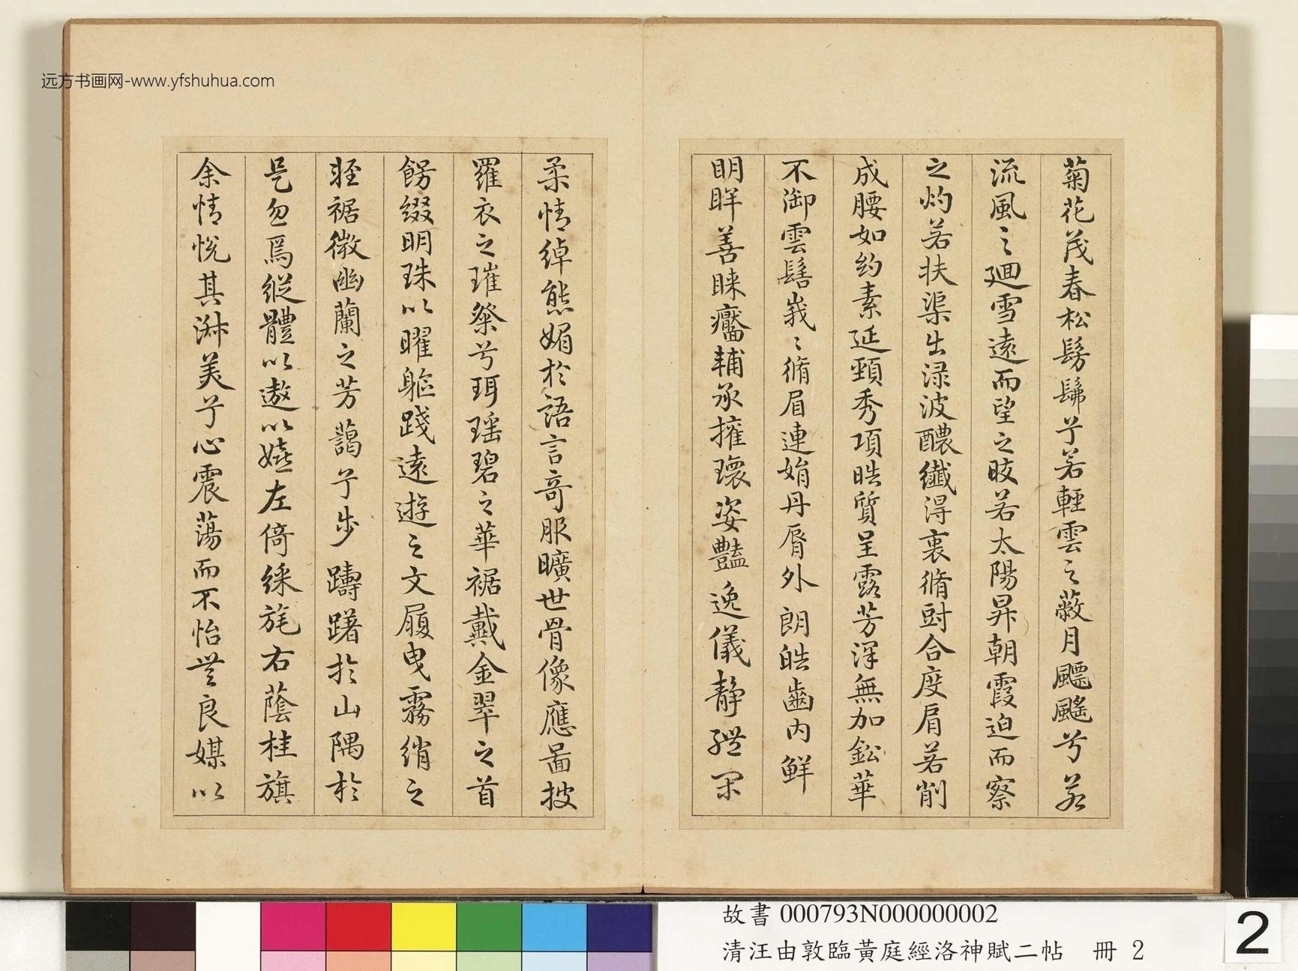 远方书画网-www.yfshuhua.com
菊花茂春松髣髴兮若輕雲之蔽月飄颻兮若
流風之迴雪遠而望之皎若太陽昇朝霞迫而察
之灼若扶渠出淥波醲纖得衷脩尌合度肩若削
成腰如約素延頸秀項皓質呈露芳澤無加鈆華
不御雲髻峩〻脩眉連娟丹脣外朗皓齒内鮮
明眸善睞靨輔承權環姿豔逸儀靜體閑
柔情綽態媚於語言奇服曠世骨像應圖披
羅衣之璀粲兮珥瑶碧之華裾戴金翠之首
餝綴明珠以曜軀踐遠遊之文履曳霧綃之
輕裾微幽蘭之芳藹兮步躊躇於山隅於
是忽焉縱體以遨以嬉左倚綵旄右蔭桂旗
余情悅其淑美兮心震蕩而不怡無良媒以
故書 000793N000000002
清汪由敦臨黃庭經洛神賦二帖 冊 2
2